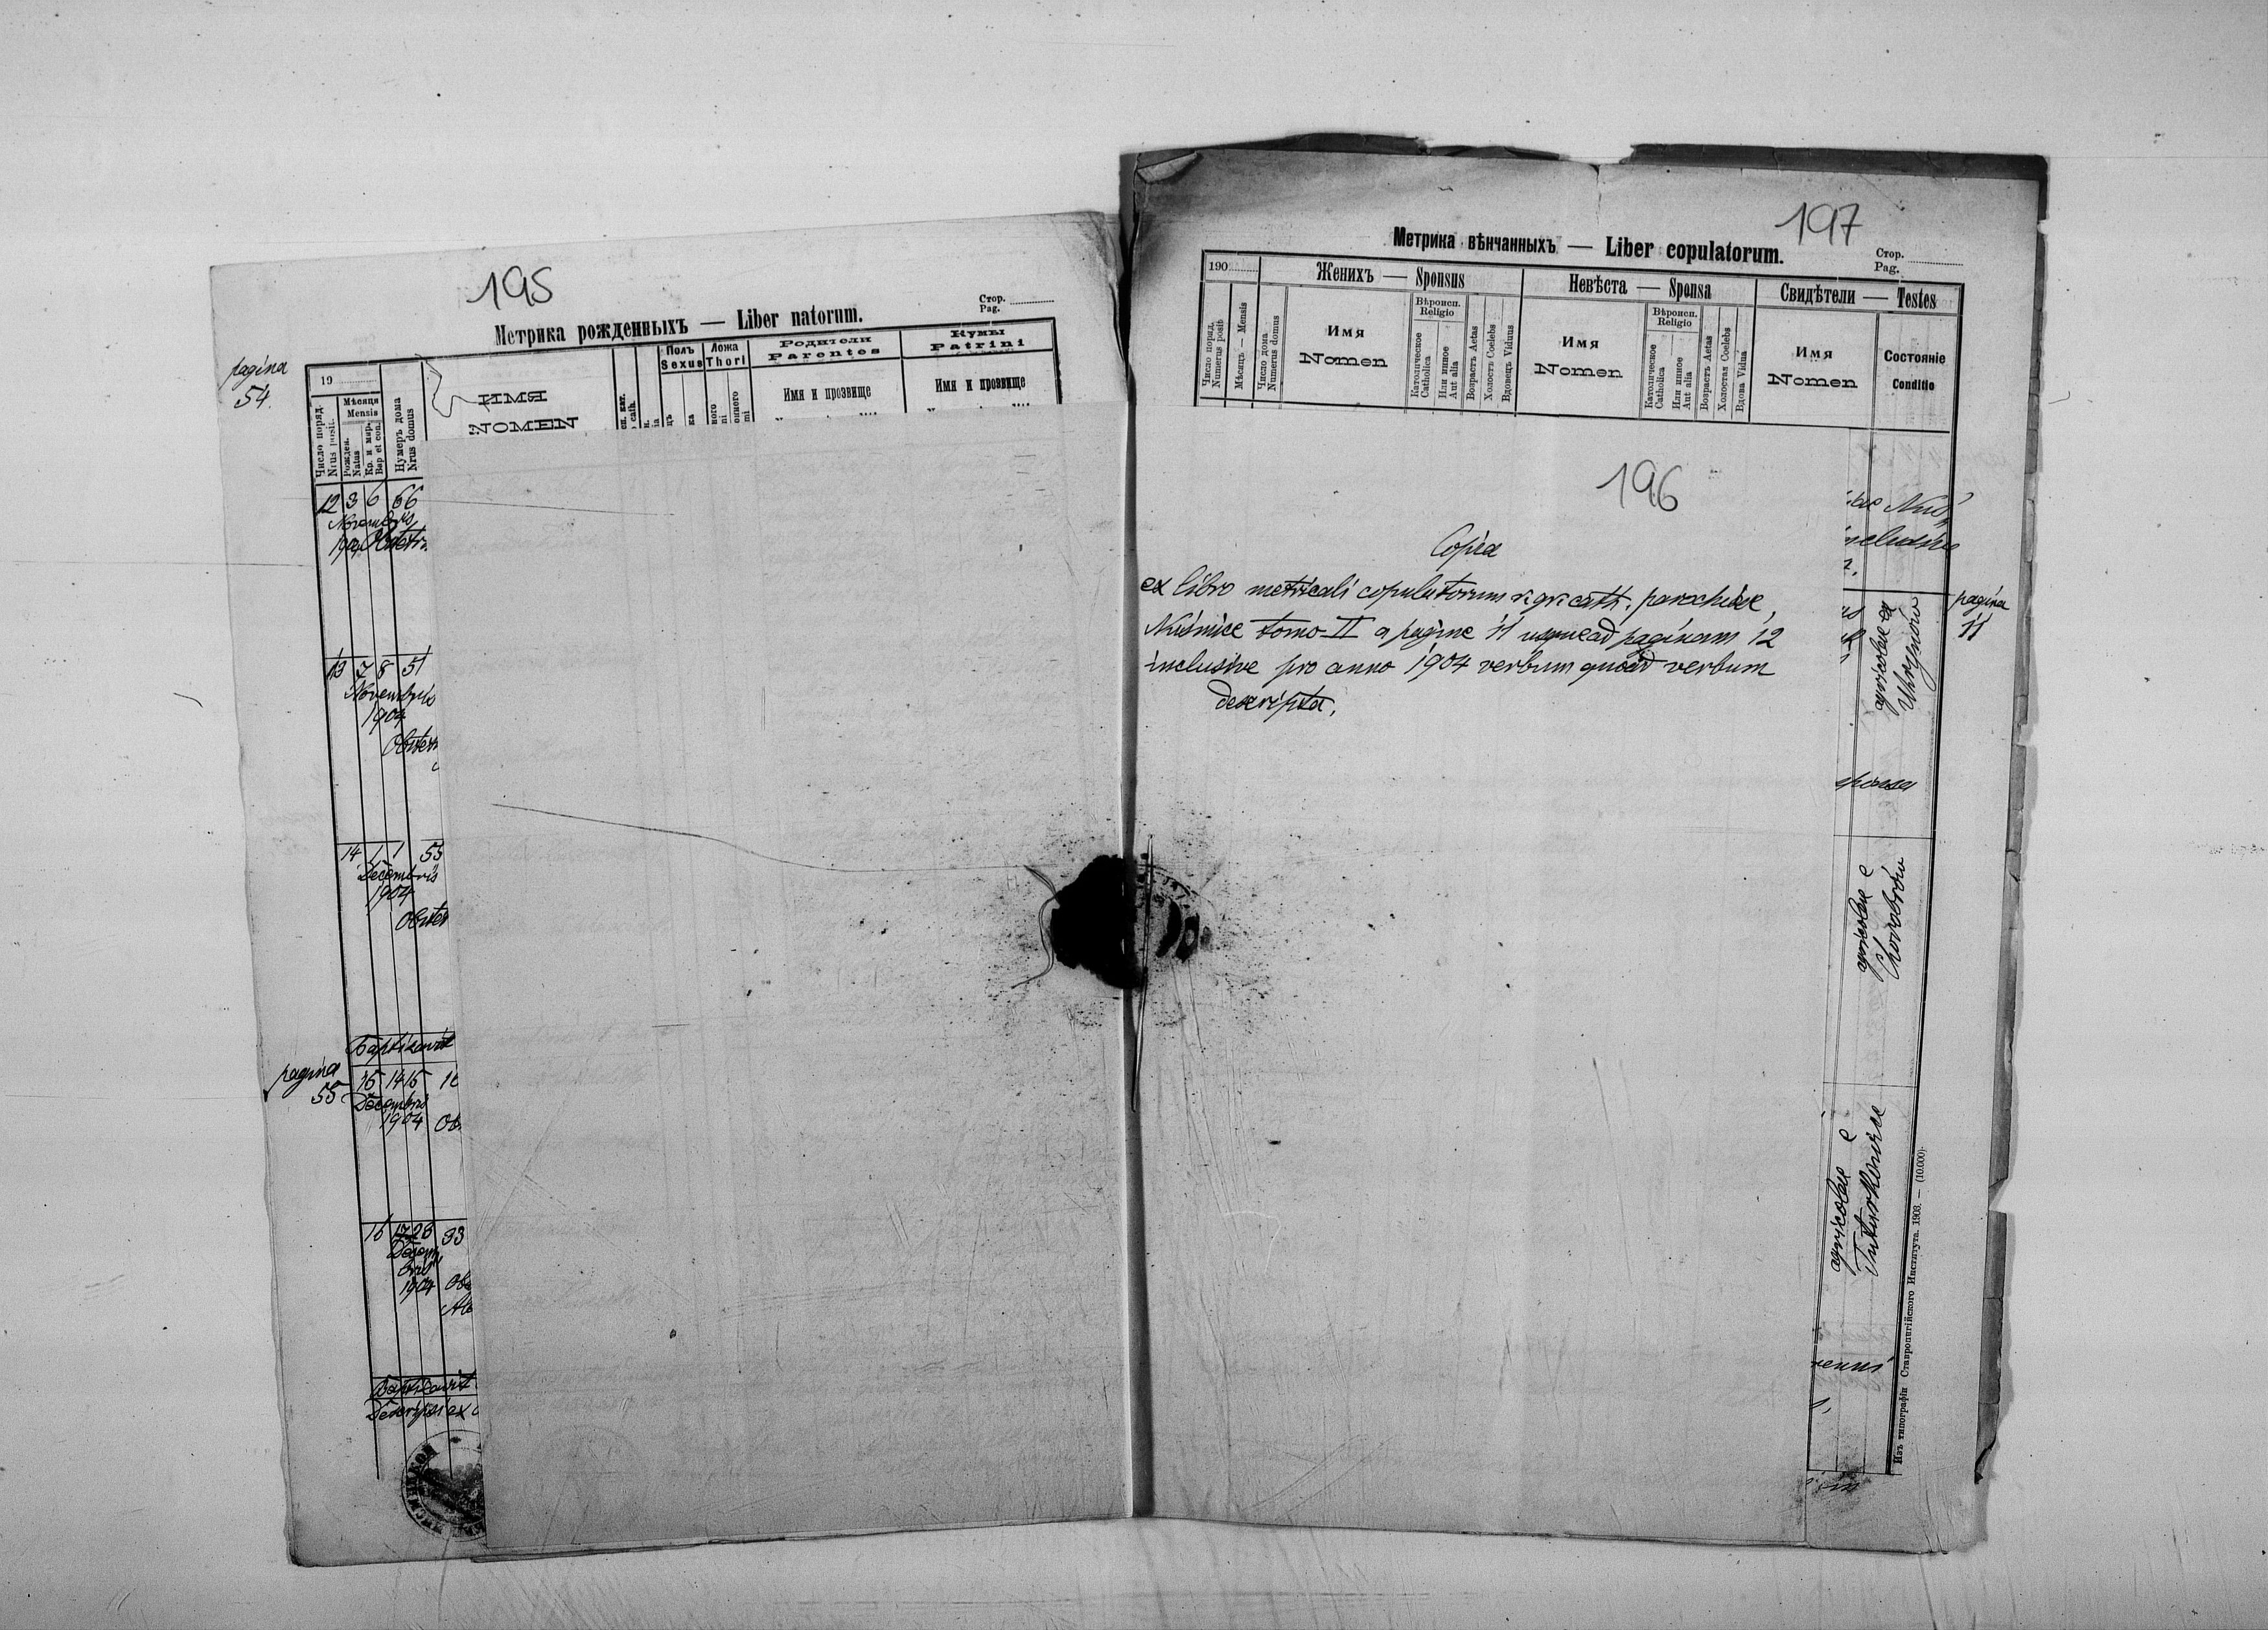 195
Стор.
Pag.
Метрика рожденныхъ — Liber natorum.
pagina
54.
19
Число поряд.
Nrus posit.
Мѣсяця
Mensis
Рожден.
Natus
Кр. и мѵр.
Bap et con.
Нумеръ дома
Nrus domus
ИМЯ
NOMEN
Полъ
Sexus
Ложа
Thori
Родители
Parentes
Имя и прозвище
Кумы
Patrini
Имя и прозвище
12 3 6 66
Novembris
1904
13 7 8 51
Novembris
1904
14 1 1 55
Decembris
1904
Baptizavit
pagina
55
15 14 15
Decembris
1904
16 17 28 93
Decem
bris
1904
Baptizavit
Descripsi ex
197
Метрика вѣнчанныхъ — Liber copulatorum.
Стор.
Pag.
190
Женихъ — Sponsus
Невѣста — Sponsa
Свидѣтели — Testes
Число поряд.
Numerus posit.
Мѣсяцъ — Mensis
Число дома
Numerus domus
Имя
Nomen
Вѣроисп.
Religio
Католическое
Catholica
Или инное
Aut alia
Возрастъ Aetas
Холостъ Coelebs
Вдовецъ Viduus
Имя
Nomen
Вѣроисп.
Religio
Католическое
Catholica
Или инное
Aut alia
Возрастъ Aetas
Холостая Coelebs
Вдова Vidua
Имя
Nomen
Состояніе
Conditio
196
Copia
ex libro metricali copulatorum r. gr. cath. parochiae
Nuśmice tomo II a pagina 11 usque ad paginam 12
inclusive pro anno 1904 verbum quoad verbum
descripta.
pagina
11
agricolae ex
Uhrynów
sponsa
agricolae e
Chorobrów
agricolae e
Tudorkowice
Изъ типографіи Ставропигійского Института. 1903. — (10.000)